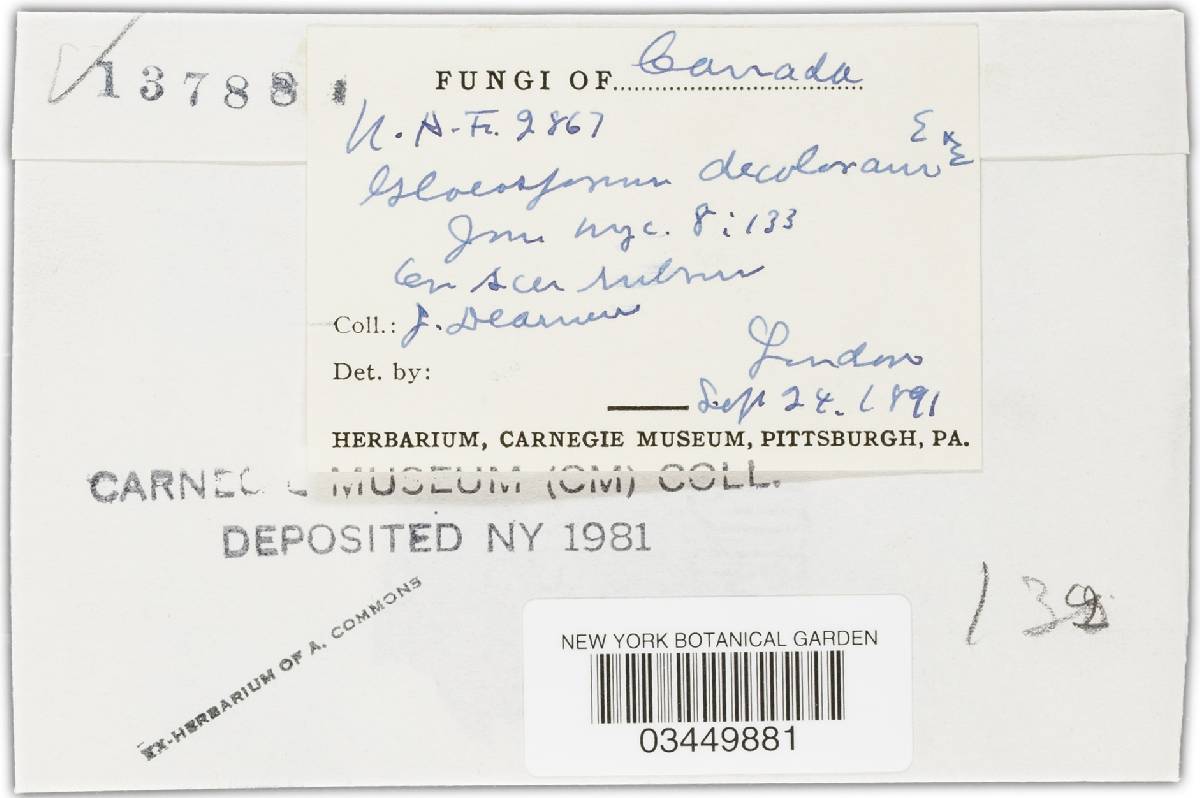 13788
FUNGI OF Canada
N. A. F. 2867
Gloeosporium decolorans E & E
Jour Myc. 8:133
On Acer rubrum
Coll.: J. Dearness
London
Det. by:
Sept 24. 1891
HERBARIUM, CARNEGIE MUSEUM, PITTSBURGH, PA.
CARNEGIE MUSEUM (CM) COLL.
DEPOSITED NY 1981
EX-HERBARIUM OF A. COMMONS
NEW YORK BOTANICAL GARDEN
03449881